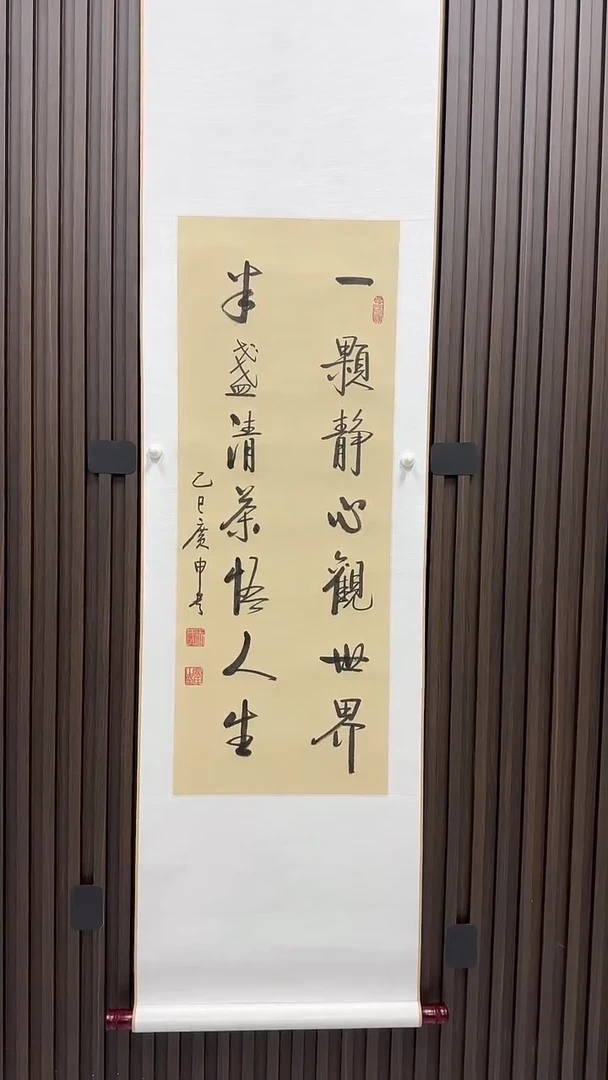 一顆靜心觀世界
半盞清茶悟人生
乙巳廣申書